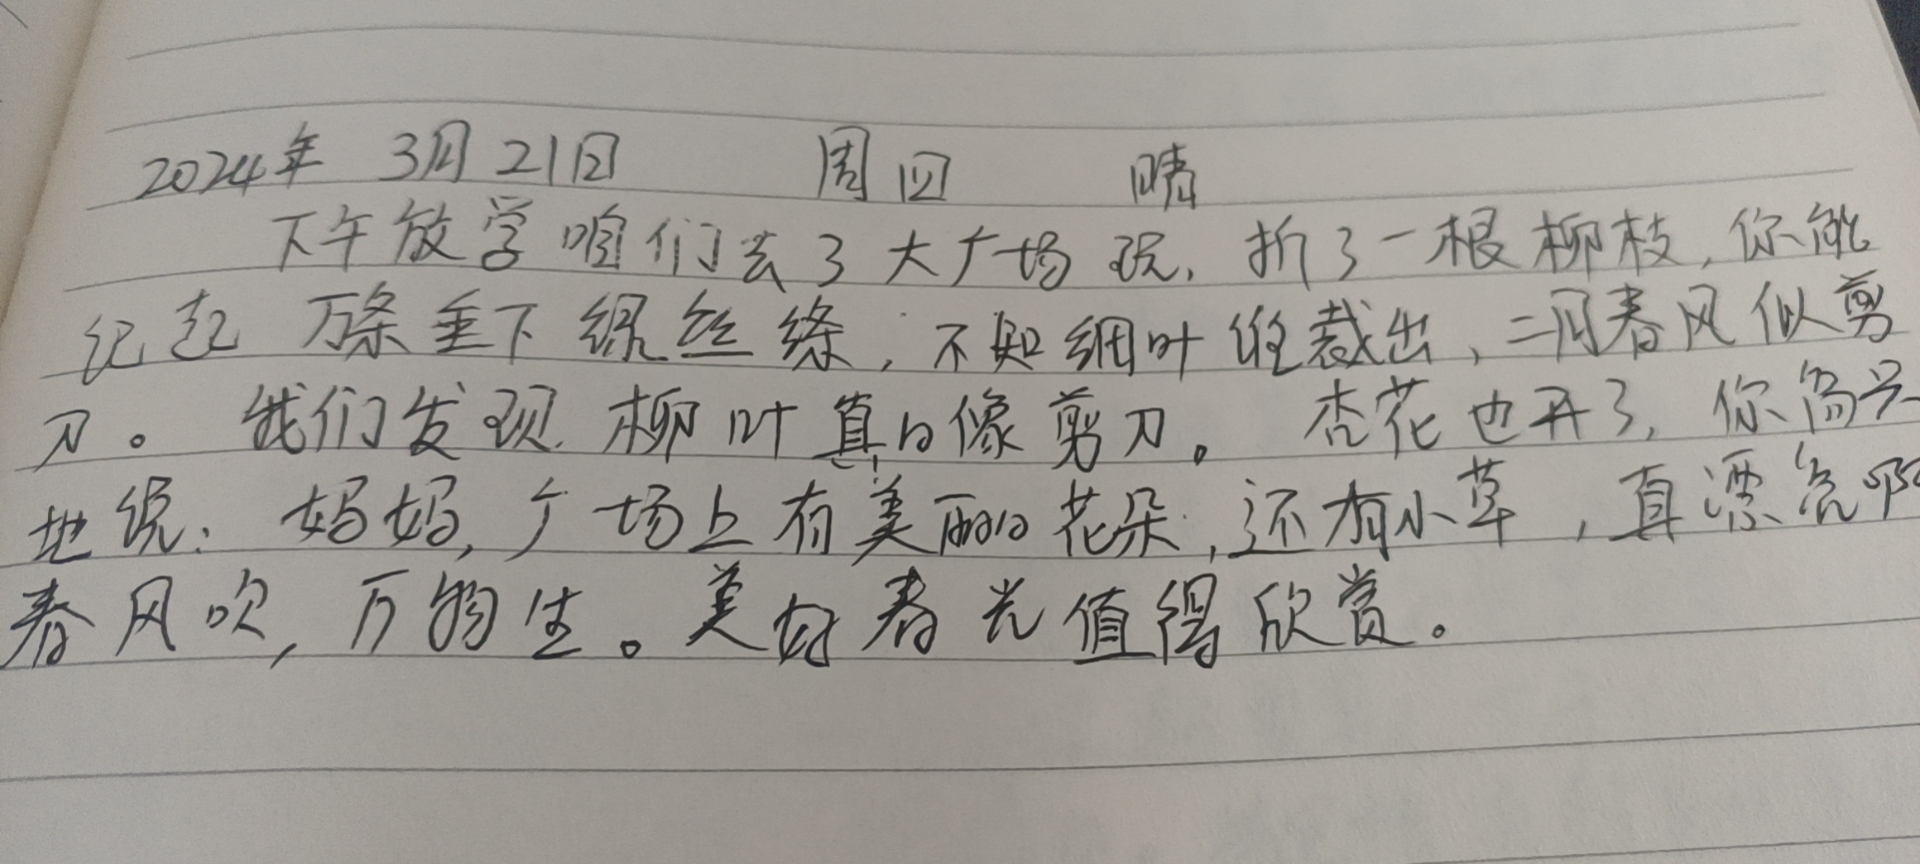 2024年 3月21日 周四 晴
下午放学咱们去了大广场玩，折了一根柳枝，你能
记起 万条垂下绿丝绦，不知细叶谁裁出，二月春风似剪
刀。我们发现柳叶真的像剪刀。杏花也开了，你高兴
地说：妈妈，广场上有美丽的花朵，还有小草，真漂亮啊
春风吹，万物生。美好春光值得欣赏。